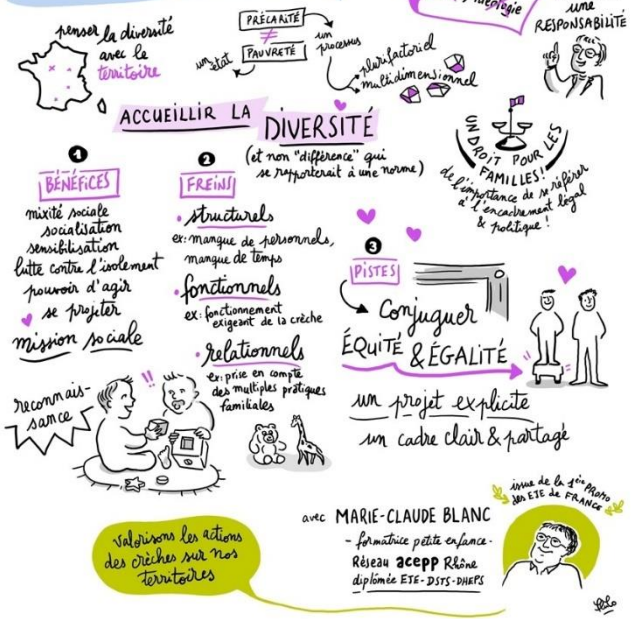 idéologie
une
RESPONSABILITÉ
penser la diversité
avec le
territoire
PRÉCARITÉ
≠
PAUVRETÉ
un état
un processus
plurifactoriel
multidimensionnel
ACCUEILLIR LA
DIVERSITÉ
(et non "différence" qui
se rapporterait à une norme)
UN DROIT POUR LES
FAMILLES!
de l'importance de se référer
à l'encadrement légal
& politique!
1
BÉNÉFICES
mixité sociale
socialisation
sensibilisation
lutte contre l'isolement
pouvoir d'agir
se projeter
mission sociale
2
FREINS
• structurels
ex: manque de personnels,
manque de temps
• fonctionnels
ex: fonctionnement
exigeant de la crèche
• relationnels
ex: prise en compte
des multiples pratiques
familiales
3
PISTES
Conjuguer
ÉQUITÉ & ÉGALITÉ
un projet explicite
un cadre clair & partagé
reconnais-
sance
!!
valorisons les actions
des crèches sur nos
territoires
avec MARIE-CLAUDE BLANC
- formatrice petite enfance -
Réseau acepp Rhône
diplômée EJE-DSTS-DHEPS
issue de la 1ère PROMO
des EJE de FRANCE